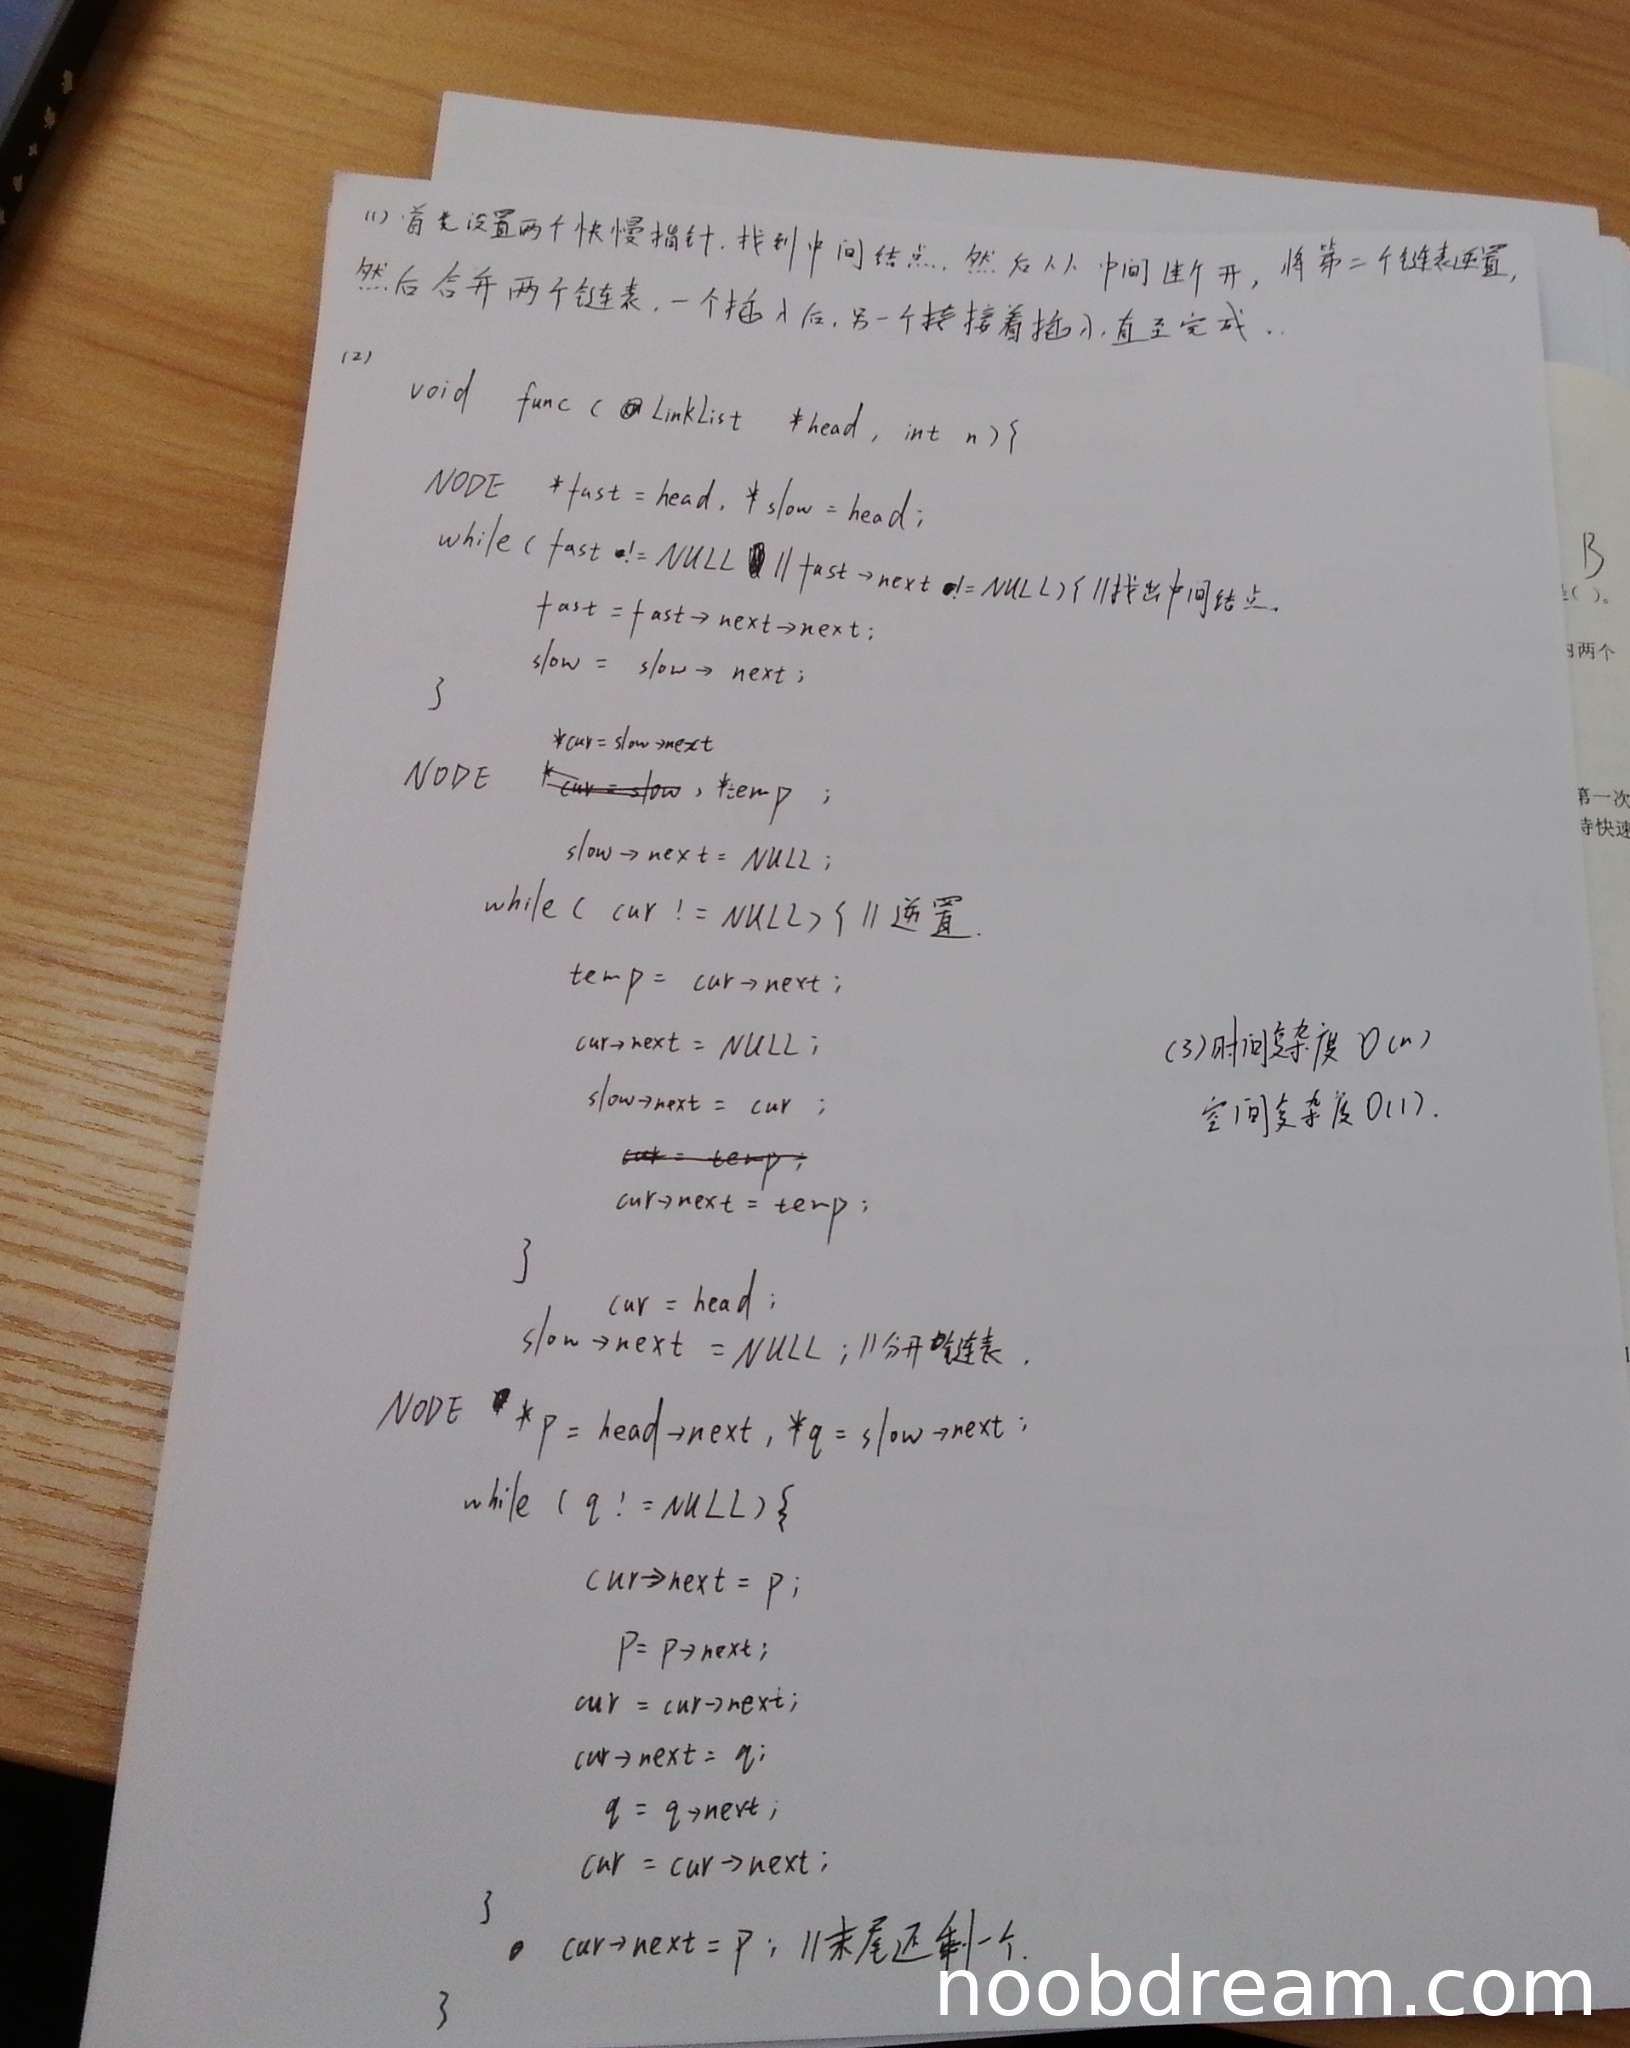 (1) 首先设置两个快慢指针.找到中间结点.然后从中间断开,将第二个链表逆置,
然后合并两个链表.一个插入后,另一个接着插入,直至完成..
(2)
void func( LinkList *head, int n){
NODE *fast = head, *slow = head;
while( fast != NULL || fast->next != NULL){ //找出中间结点.
fast = fast->next->next;
slow = slow->next;
}
*cur=slow->next
NODE *cur = slow, *temp ;
slow->next = NULL;
while( cur != NULL){ //逆置.
temp = cur->next;
cur->next = NULL;
slow->next = cur ;
cur = temp;
cur->next = temp;
}
(3)时间复杂度O(n)
空间复杂度O(1).
cur = head;
slow->next = NULL; //分开链表.
NODE *p = head->next, *q = slow->next;
while ( q != NULL){
cur->next = p;
p= p->next;
cur = cur->next;
cur->next = q;
q = q->next;
cur = cur->next;
}
cur->next = p; //末尾还剩一个.
}
B
是( )。
两个
第一次
待快速
noobdream.com